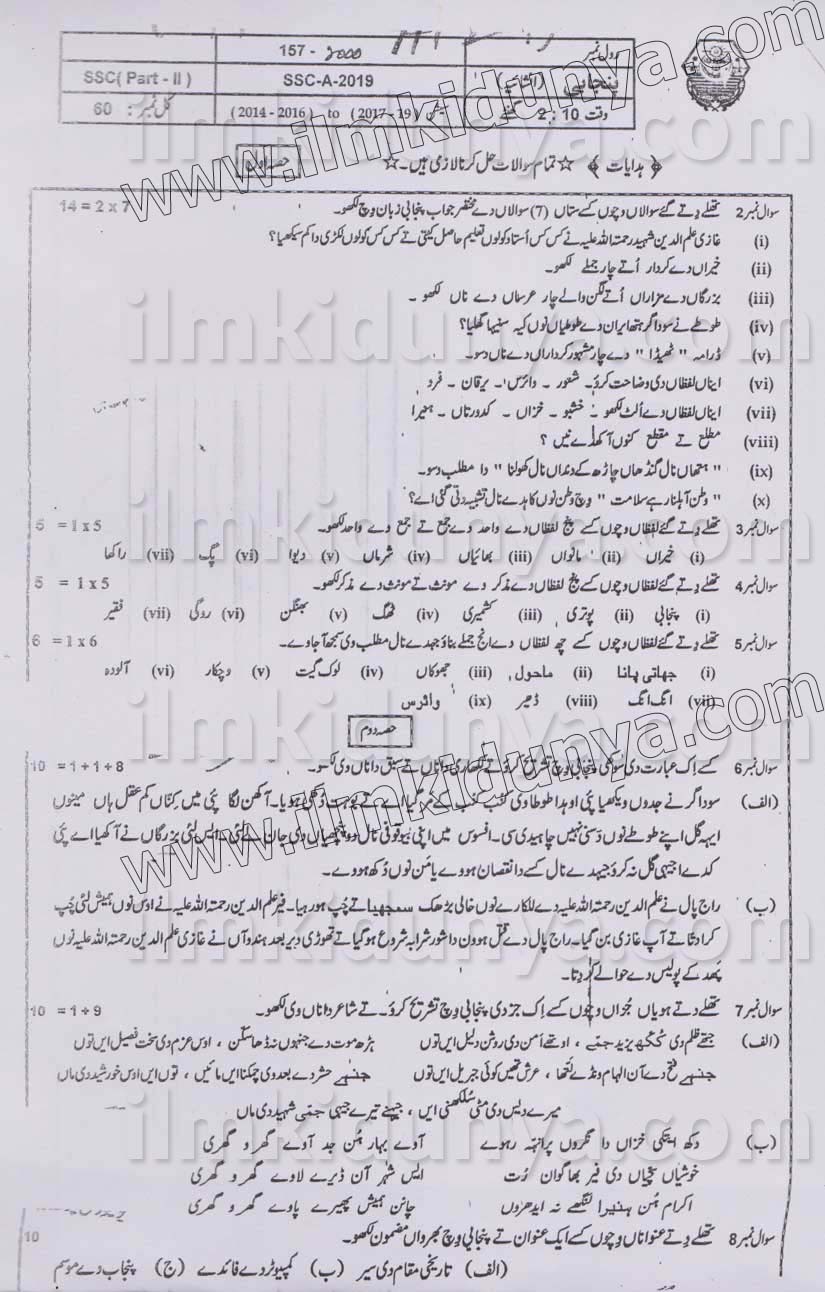 157 - 2000
رول نمبر
SSC( Part - II )
SSC-A-2019
پنجابی (انشائیہ)
کل نمبر: 60
سیشن (2014 - 2016) to (2017 - 19)
وقت 2 : 10 گھنٹے
﴿ ہدایات ﴾ ☆ تمام سوالات حل کرنا لازمی ہیں۔ ☆
حصہ اول
سوال نمبر 2 تھلے دِتے گئے سوالاں وچوں کسے ستاں (7) سوالاں دے مختصر جواب پنجابی زبان وِچ لکھو۔ 14 = 2 x 7
(i) غازی علم الدین شہید رحمتہ اللہ علیہ نے کس کس اُستاد کولوں تعلیم حاصل کیتی تے کس کس کولوں لکڑی دا کم سیکھیا؟
(ii) خیراں دے کردار اُتے چار جملے لکھو۔
(iii) بزرگاں دے مزاراں اُتے لگن والے چار عرساں دے ناں لکھو ۔
(iv) طوطے نے سوداگر ہتھ ایران دے طوطیاں نوں کیہ سنیہا گھلیا؟
(v) ڈرامہ " ٹھیڈا " دے چار مشہور کرداراں دے ناں دسو۔
(vi) ایناں لفظاں دی وضاحت کرو۔ شعور ۔ وائرس ۔ یرقان ۔ فرد
(vii) ایناں لفظاں دے اُلٹ لکھو ۔ خشبو ۔ خزاں ۔ کدورتاں ۔ ہنیرا
(viii) مطلع تے مقطع کنوں آکھدے نیں ؟
(ix) " ہتھاں نال گنڈھاں چاڑھ کے دنداں نال کھولنا " دا مطلب دسو۔
(x) " وطن آہلنا رہے سلامت " وِچ وطن نوں کاہدے نال تشبیہ دِتی گئی اے؟
سوال نمبر 3 تھلے دِتے گئے لفظاں وچوں کسے پنج لفظاں دے واحد دے جمع تے جمع دے واحد لکھو۔ 5 = 1 x 5
(i) خیراں (ii) مانواں (iii) بھائیاں (iv) شرماں (v) دیوا (vi) پگ (vii) راکھا
سوال نمبر 4 تھلے دِتے گئے لفظاں وچوں کسے پنج لفظاں دے مذکر دے مونث تے مونث دے مذکر لکھو۔ 5 = 1 x 5
(i) پنجابی (ii) پوتری (iii) کشمیری (iv) ٹھگ (v) بھنگن (vi) روگی (vii) فقیر
سوال نمبر 5 تھلے دِتے گئے لفظاں وچوں کسے چھ لفظاں دے انج جملے بناؤ جہدے نال مطلب دی سمجھ آ جاوے۔ 6 = 1 x 6
(i) جھاتی پانا (ii) ماحول (iii) جھوکاں (iv) لوک گیت (v) وچکار (vi) آلودہ
(vii) انگ انگ (viii) ڈھیر (ix) وائرس
حصہ دوم
سوال نمبر 6 کسے اِک عبارت دی سوکھی پنجابی وِچ تشریح کرو تے لکھاری دا ناں تے سبق دا ناں وی لکھو۔ 10 = 1+1+8
(الف) سوداگر نے جدوں ویکھیا پئی اوہدا طوطا وی کنب کنب کے مر گیا اے تے بوہت دُکھی ہویا۔ آکھن لگا پئی میں کِناں کم عقل ہاں مینوں
ایہہ گل اپنے طوطے نوں دَسنی نہیں چاہیدی سی۔ افسوس میں اپنی بیوقوفی نال دو پنچھیاں دی جان لے لئی۔ ایس لئی بزرگاں نے آکھیا اے پئی
کدے اجیہی گل نہ کرو جیہدے نال کسے دا نقصان ہووے یا من نوں دُکھ ہووے۔
(ب) راج پال نے علم الدین رحمتہ اللہ علیہ دے للکارے نوں خالی بڑھک سمجھیا تے چُپ ہو رہیا۔ فیر علم الدین رحمتہ اللہ علیہ نے اوس نوں ہمیش لئی چُپ
کرا دتا تے آپ غازی بن گیا۔ راج پال دے قتل ہوون دا شور شرابہ شروع ہو گیا تے تھوڑی دیر بعد ہندوآں نے غازی علم الدین رحمتہ اللہ علیہ نوں
پھد کے پولیس دے حوالے کر دِتا۔
سوال نمبر 7 تھلے دتے ہویاں جُزاں وچوں کسے اِک جز دی پنجابی وِچ تشریح کرو۔ تے شاعر دا ناں وی لکھو۔ 10 = 1+9
(الف) جتھے ظلم دی کُکھ یزید جمے ، اوتھے اُمن دی روشن دلیل ایں توں ہڑھ موت دے جنہوں نہ ڈھا سکن ، اوس عزم دی سخت فصیل ایں توں
جنہے فتح دے آن الہام ونڈے ، عرش تھیں کوئی جبریل ایں توں جنہے حشر دے بعد وی چمکنا ایں مائیں ، توں ایں اوس خورشید دی ماں
میرے دیس دی مٹی سُلکھنی ایں ، جیہنے تیرے جیہی جمّی شہید دی ماں
(ب) وکھ ایتکی خزاں دا نگروں پرانہہ رہوے آوے بہار ہُن جد آوے گھرو گھری
خوشیاں سچیاں دی فیر بھاگوان رُت ایس شہر آن ڈیرے لاوے گھرو گھری
اکرام ہُن ہنیرا لنگھے نہ ایدھروں چانن ہمیش پھیرے پاوے گھرو گھری
سوال نمبر 8 تھلے دِتے عنواناں وچوں کسے ایک عنوان تے پنجابی وِچ بھرواں مضمون لکھو۔ 10
(الف) تاریخی مقام دی سیر (ب) کمپیوٹر دے فائدے (ج) پنجاب دے موسم
www.ilmkidunya.com
www.ilmkidunya.com
ilmkidunya.com
ilmkidunya.com
ilmkidunya.com
ilmkidunya.com
ilmkidunya.com